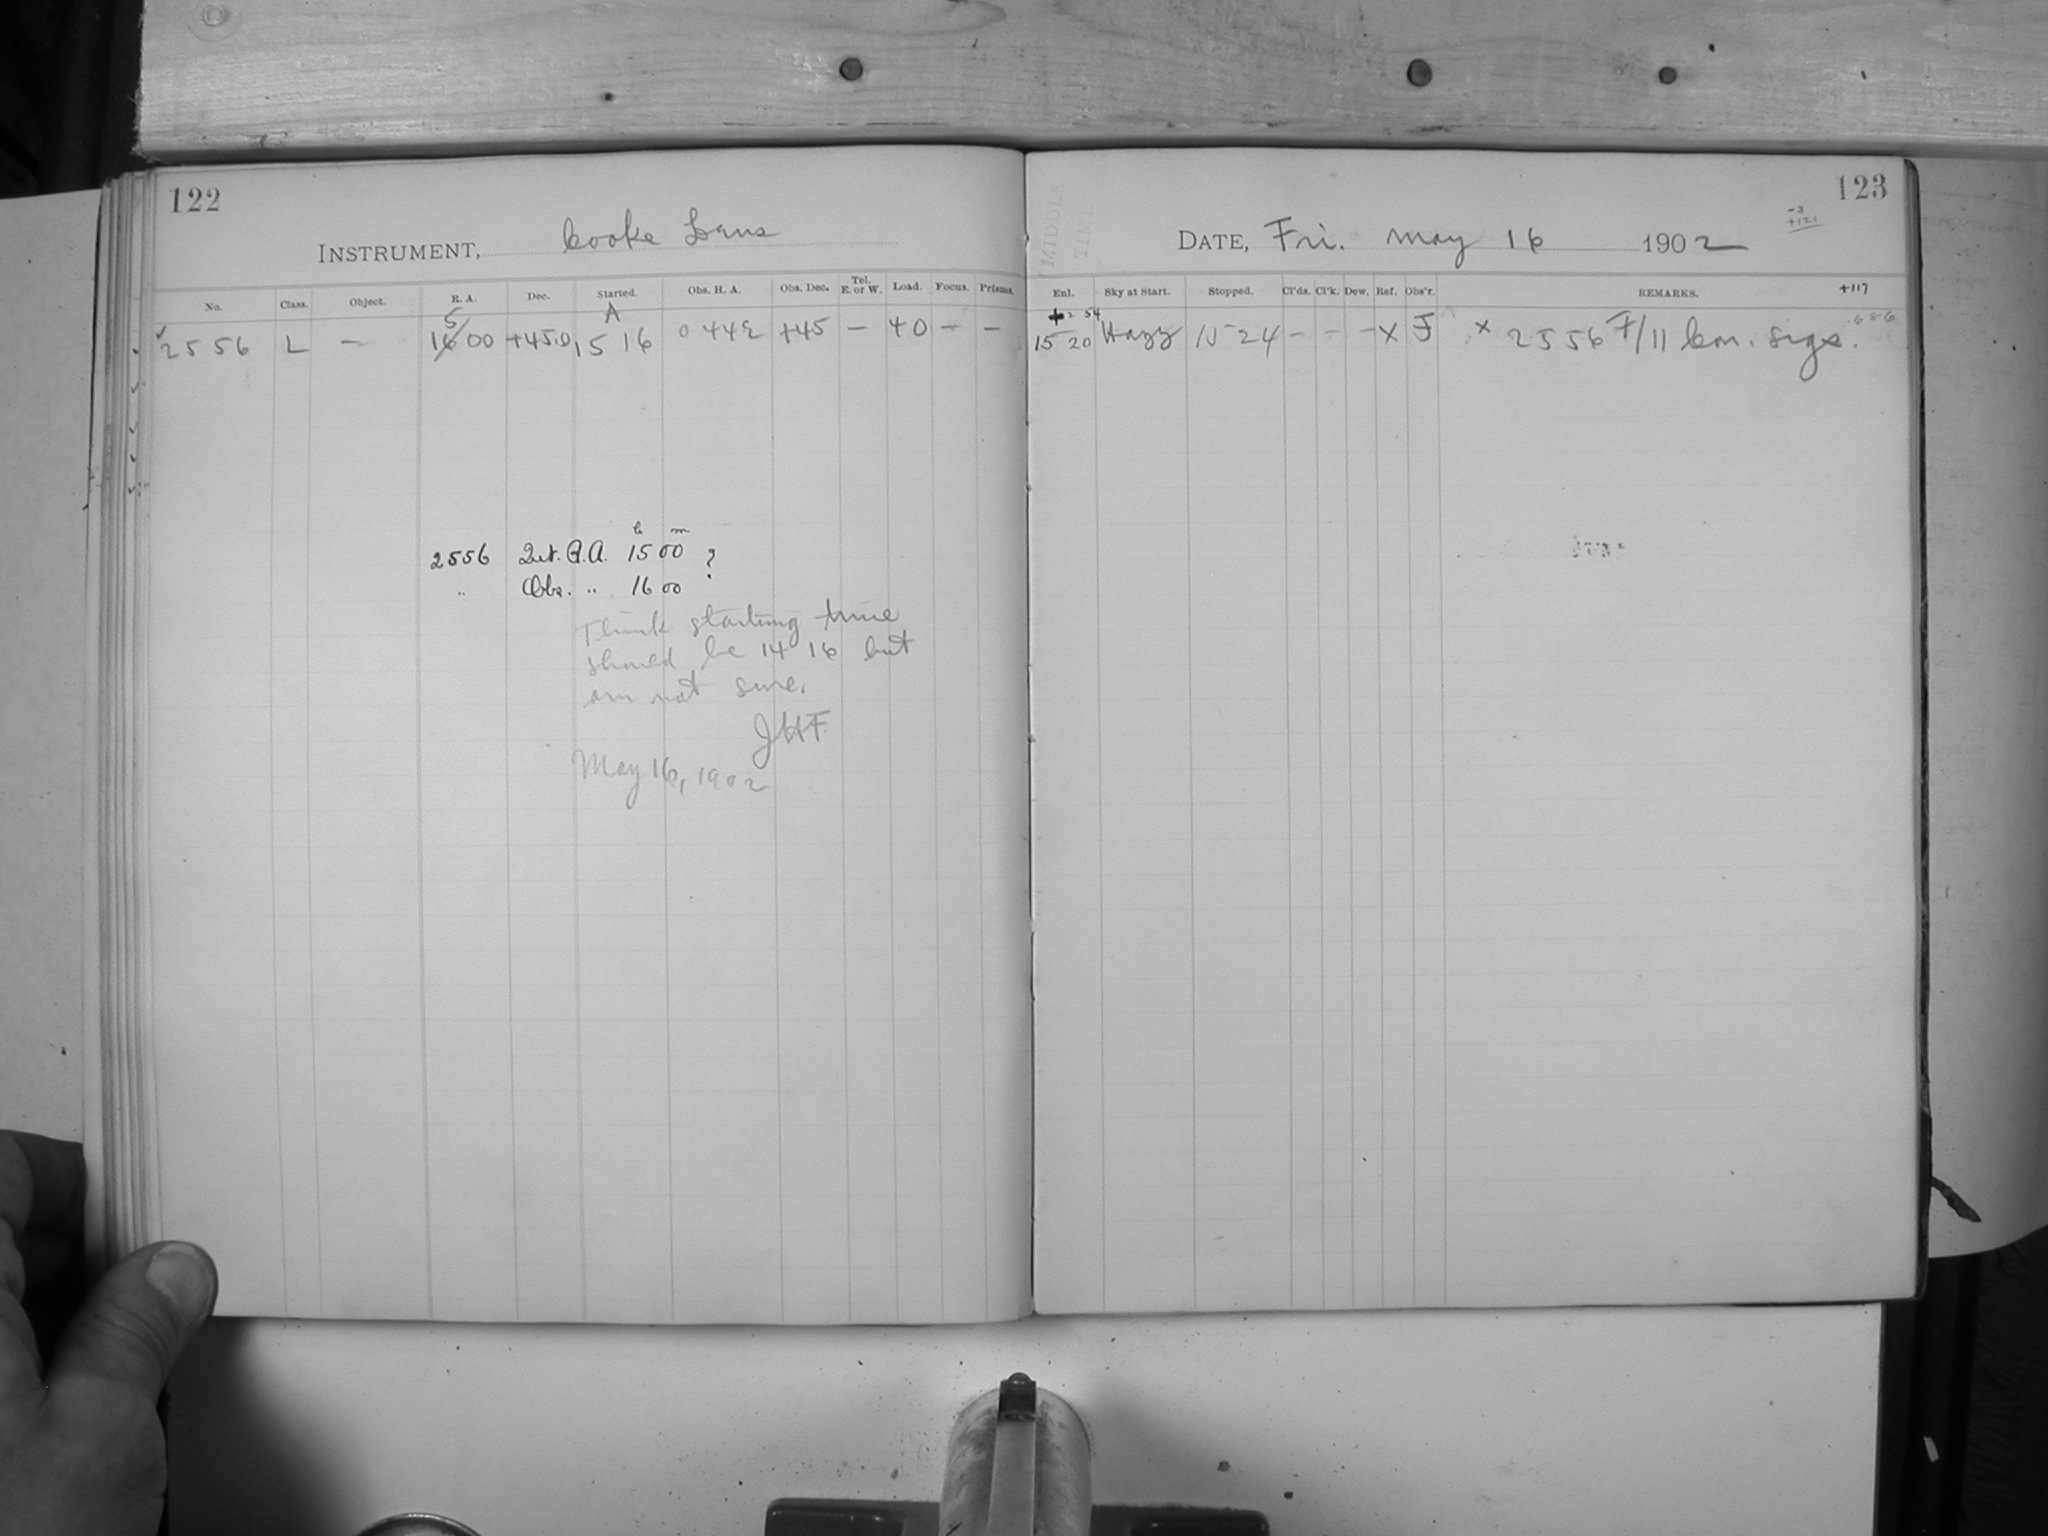 122
INSTRUMENT, Cooke Lens
No. Class. Object. R. A. Dec. Started. Obs. H. A. Obs. Dec. Tel. E. or W. Load. Focus. Prisms.
A
5
2556 L — 16 00 +45.0 15 16 0 44 E +45 — 40 — —
h m
2556 Det. R.A. 15 00 ?
" Obs. " 16 00
Think starting time
should be 14 16 but
am not sure.
JHF.
May 16, 1902
123
-3
+121
MIDDLE
TIME
DATE, Fri. May 16 1902
Enl. Sky at Start. Stopped. Cl'ds. Cl'k. Dew. Ref. Obs'r. REMARKS. +117
2 54
15 20 Hazy 15 24 — — — X F x 2556 F/11 Com. Sigs.